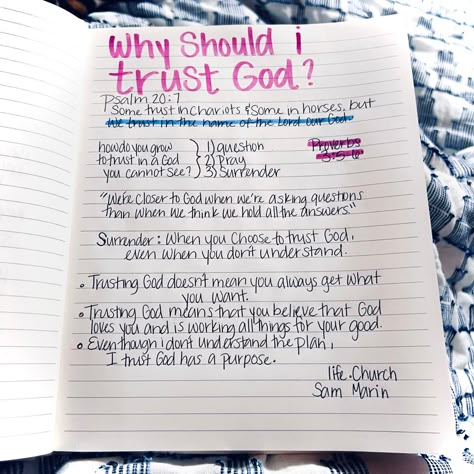 Why Should i
trust God?
Psalm 20:7
Some trust in Chariots & Some in horses, but
We trust in the name of the Lord our God.
how do you grow } 1) question
to trust in a God } 2) Pray
you cannot see? } 3) Surrender
Proverbs
3:5-6
"We're closer to God when we're asking questions
than when we think we hold all the answers."
Surrender: When you choose to trust God,
even when you don't understand.
• Trusting God doesn't mean you always get what
you want.
• Trusting God means that you believe that God
loves you and is working all things for your good.
• Even though i don't understand the plan,
I trust God has a purpose.
life.Church
Sam Marin